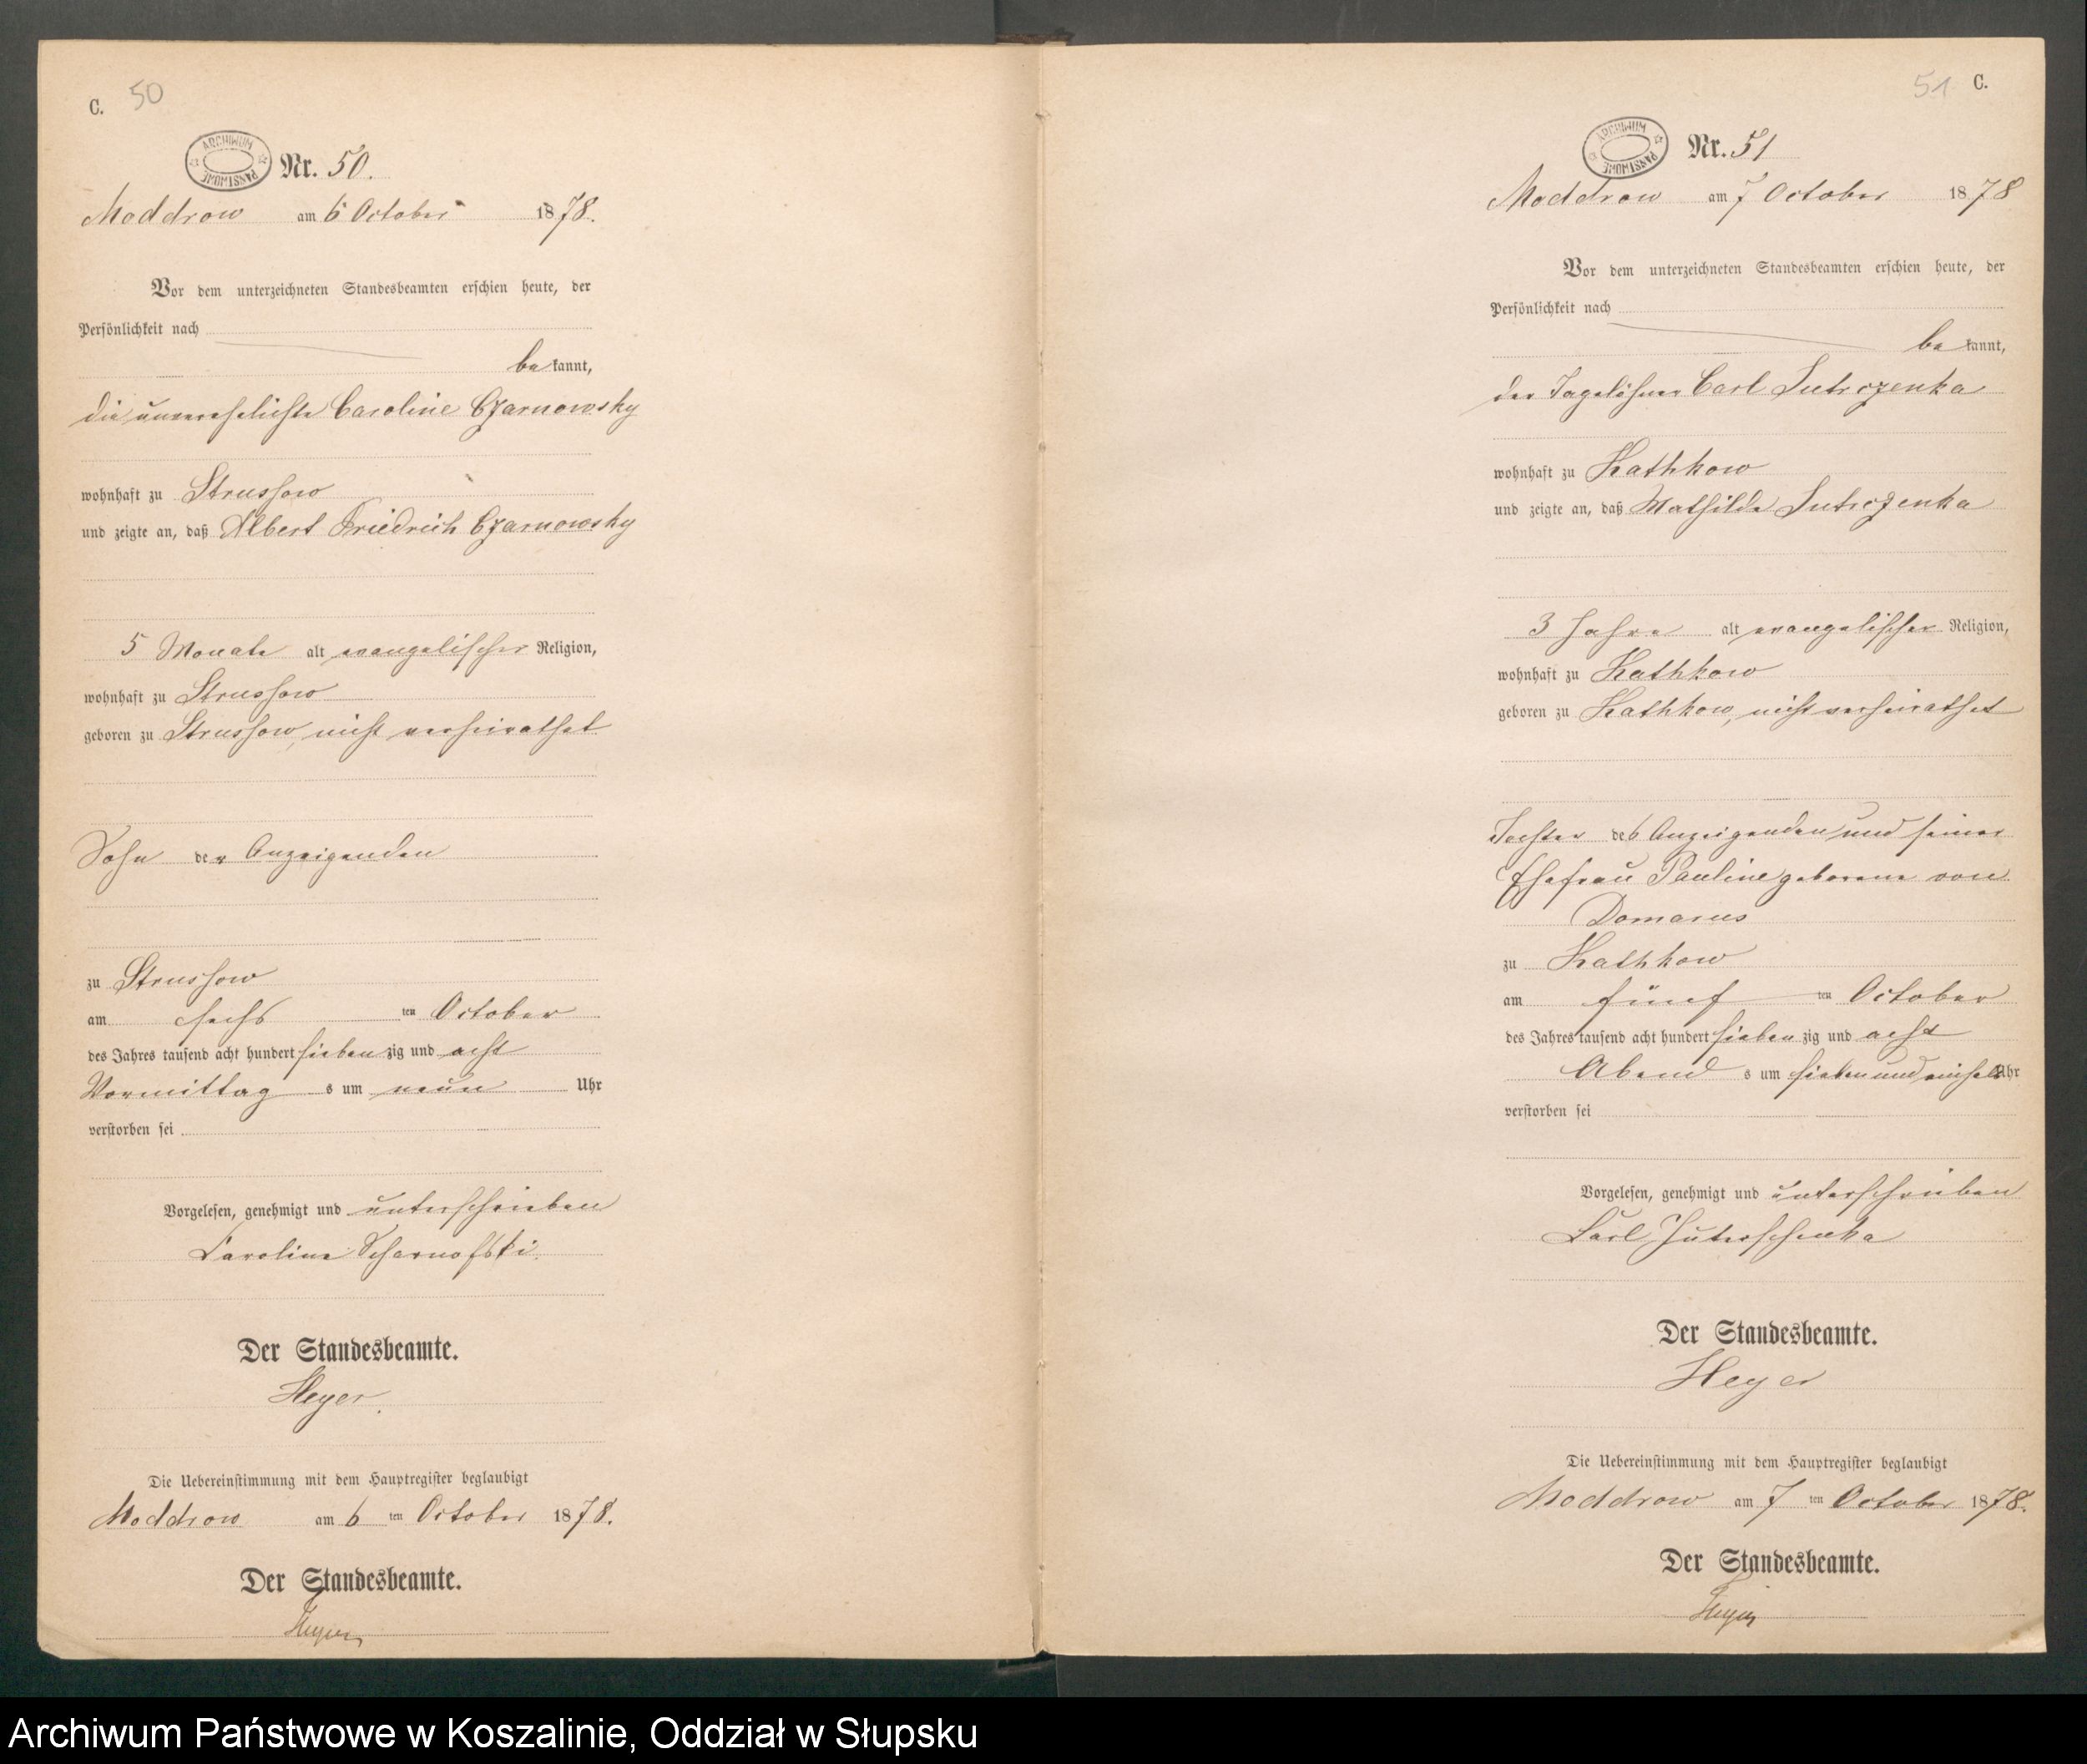 C. 50
ARCHIWUM PAŃSTWOWE
Nr. 50.
Moddrow am 6 October 1878.
Vor dem unterzeichneten Standesbeamten erschien heute, der
Persönlichkeit nach
bekannt,
die unverehelichte Caroline Czarnowsky
wohnhaft zu Strussow
und zeigte an, daß Albert Friedrich Czarnowsky
5 Monate alt evangelischer Religion,
wohnhaft zu Strussow
geboren zu Strussow, nicht verheirathet
Sohn der Anzeigenden
zu Strussow
am sechsten October
des Jahres tausend acht hundert siebenzig und acht
Vormittags um neun Uhr
verstorben sei
Vorgelesen, genehmigt und unterschrieben
Caroline Scharnofski.
Der Standesbeamte.
Heyer.
Die Uebereinstimmung mit dem Hauptregister beglaubigt
Moddrow am 6ten October 1878.
Der Standesbeamte.
Heyer
51 C.
ARCHIWUM PAŃSTWOWE
Nr. 51
Moddrow am 7 October 1878
Vor dem unterzeichneten Standesbeamten erschien heute, der
Persönlichkeit nach
bekannt,
der Tagelöhner Carl Jutrczenka
wohnhaft zu Kathkow
und zeigte an, daß Mathilde Jutrczenka
3 Jahre alt evangelischer Religion,
wohnhaft zu Kathkow
geboren zu Kathkow, nicht verheirathet
Tochter des Anzeigenden und seiner
Ehefrau Pauline geborene von
Domarus
zu Kathkow
am fünften October
des Jahres tausend acht hundert siebenzig und acht
Abends um sieben und einhalb Uhr
verstorben sei
Vorgelesen, genehmigt und unterschrieben
Carl Juterschenka
Der Standesbeamte.
Heyer
Die Uebereinstimmung mit dem Hauptregister beglaubigt
Moddrow am 7ten October 1878.
Der Standesbeamte.
Heyer
Archiwum Państwowe w Koszalinie, Oddział w Słupsku